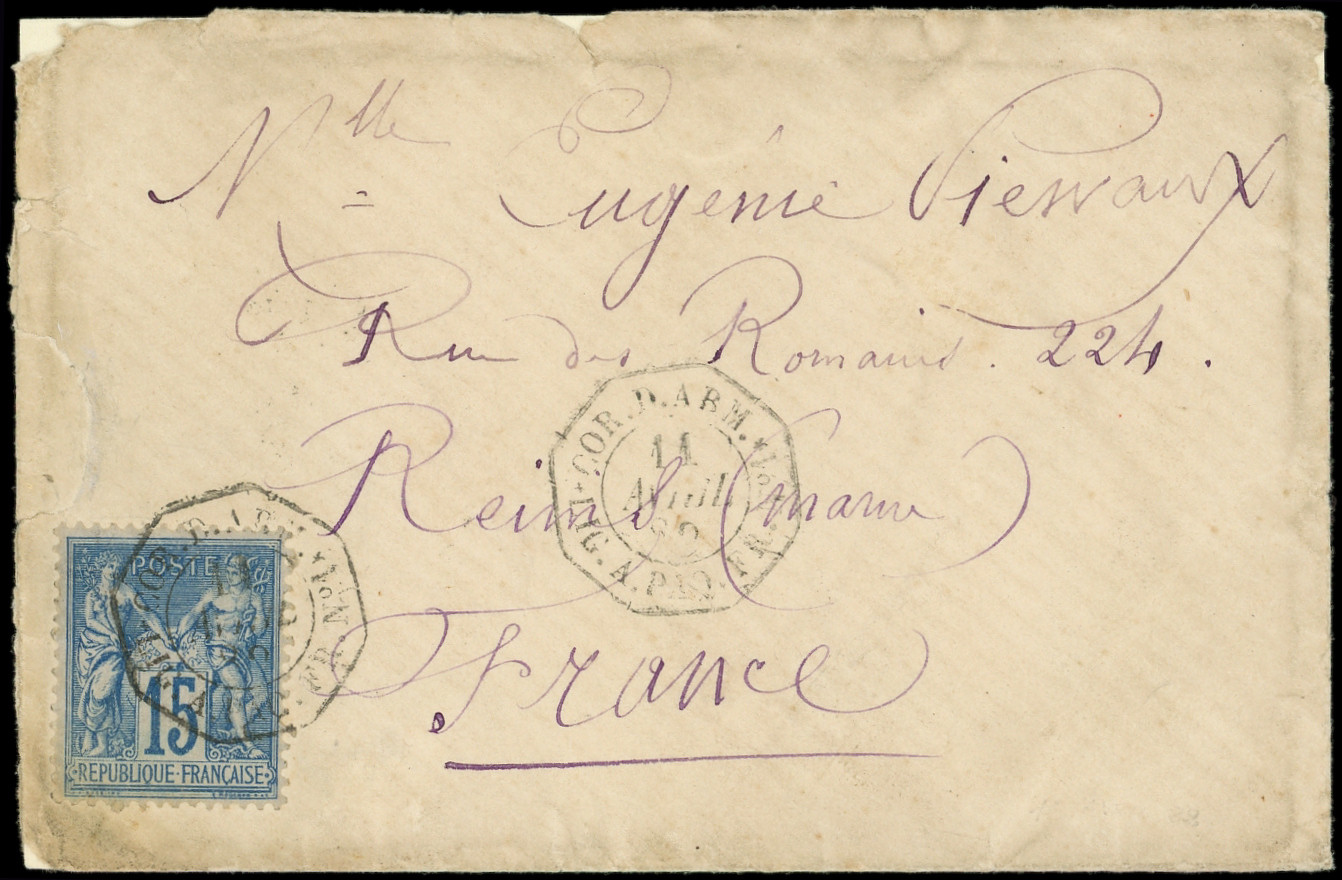 Mlle Eugénie
Rue des Romains. 224.
Reims (marne)
France
COR.D.ARM.
LIG.A.PAQ.FR.
11
AVRIL
82
POSTE
15
REPUBLIQUE·FRANÇAISE